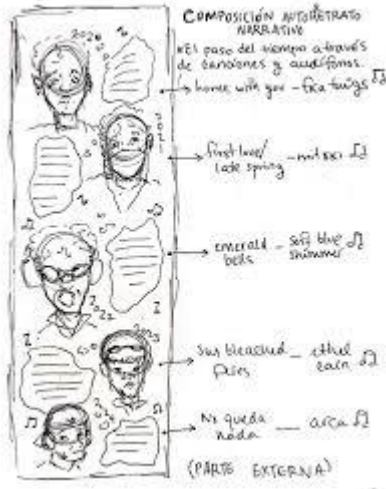 COMPOSICIÓN AUTORETRATO
NARRATIVO
*El paso del tiempo a través
de canciones y audífonos.
2020
home with you - fka twigs
2021
first love/
late spring - mitski
emerald
bells - soft blue
shimmer
2022
2023
Sun bleached
flies - ethel
cain
No queda
nada - arca
(PARTE EXTERNA)